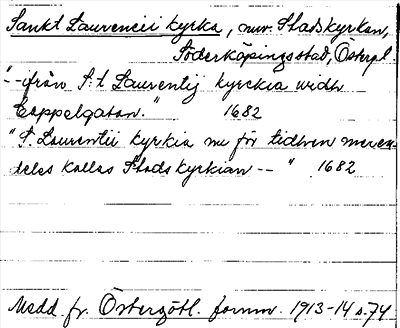 Sankt Laurencii kyrka, nuv. Stadskyrkan,
Söderköpings stad, Östergl.
"--ifrån S:t Laurentij kyrckia widh
Cappelgatan." 1682
"S. Laurentii kyrkia nu för tidhen meren-
deles kallas Stadskyrkian --" 1682
Medd. fr. Östergötl. fornm. 1913-14 s. 74